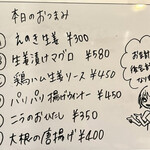 本日のおつまみ
えのき生姜 ¥300
生姜漬けマグロ ¥580
鶏ハム生姜ソース ¥450
パリパリ揚げウィンナー ¥450
ニラのおひたし ¥350
大根の唐揚げ ¥400